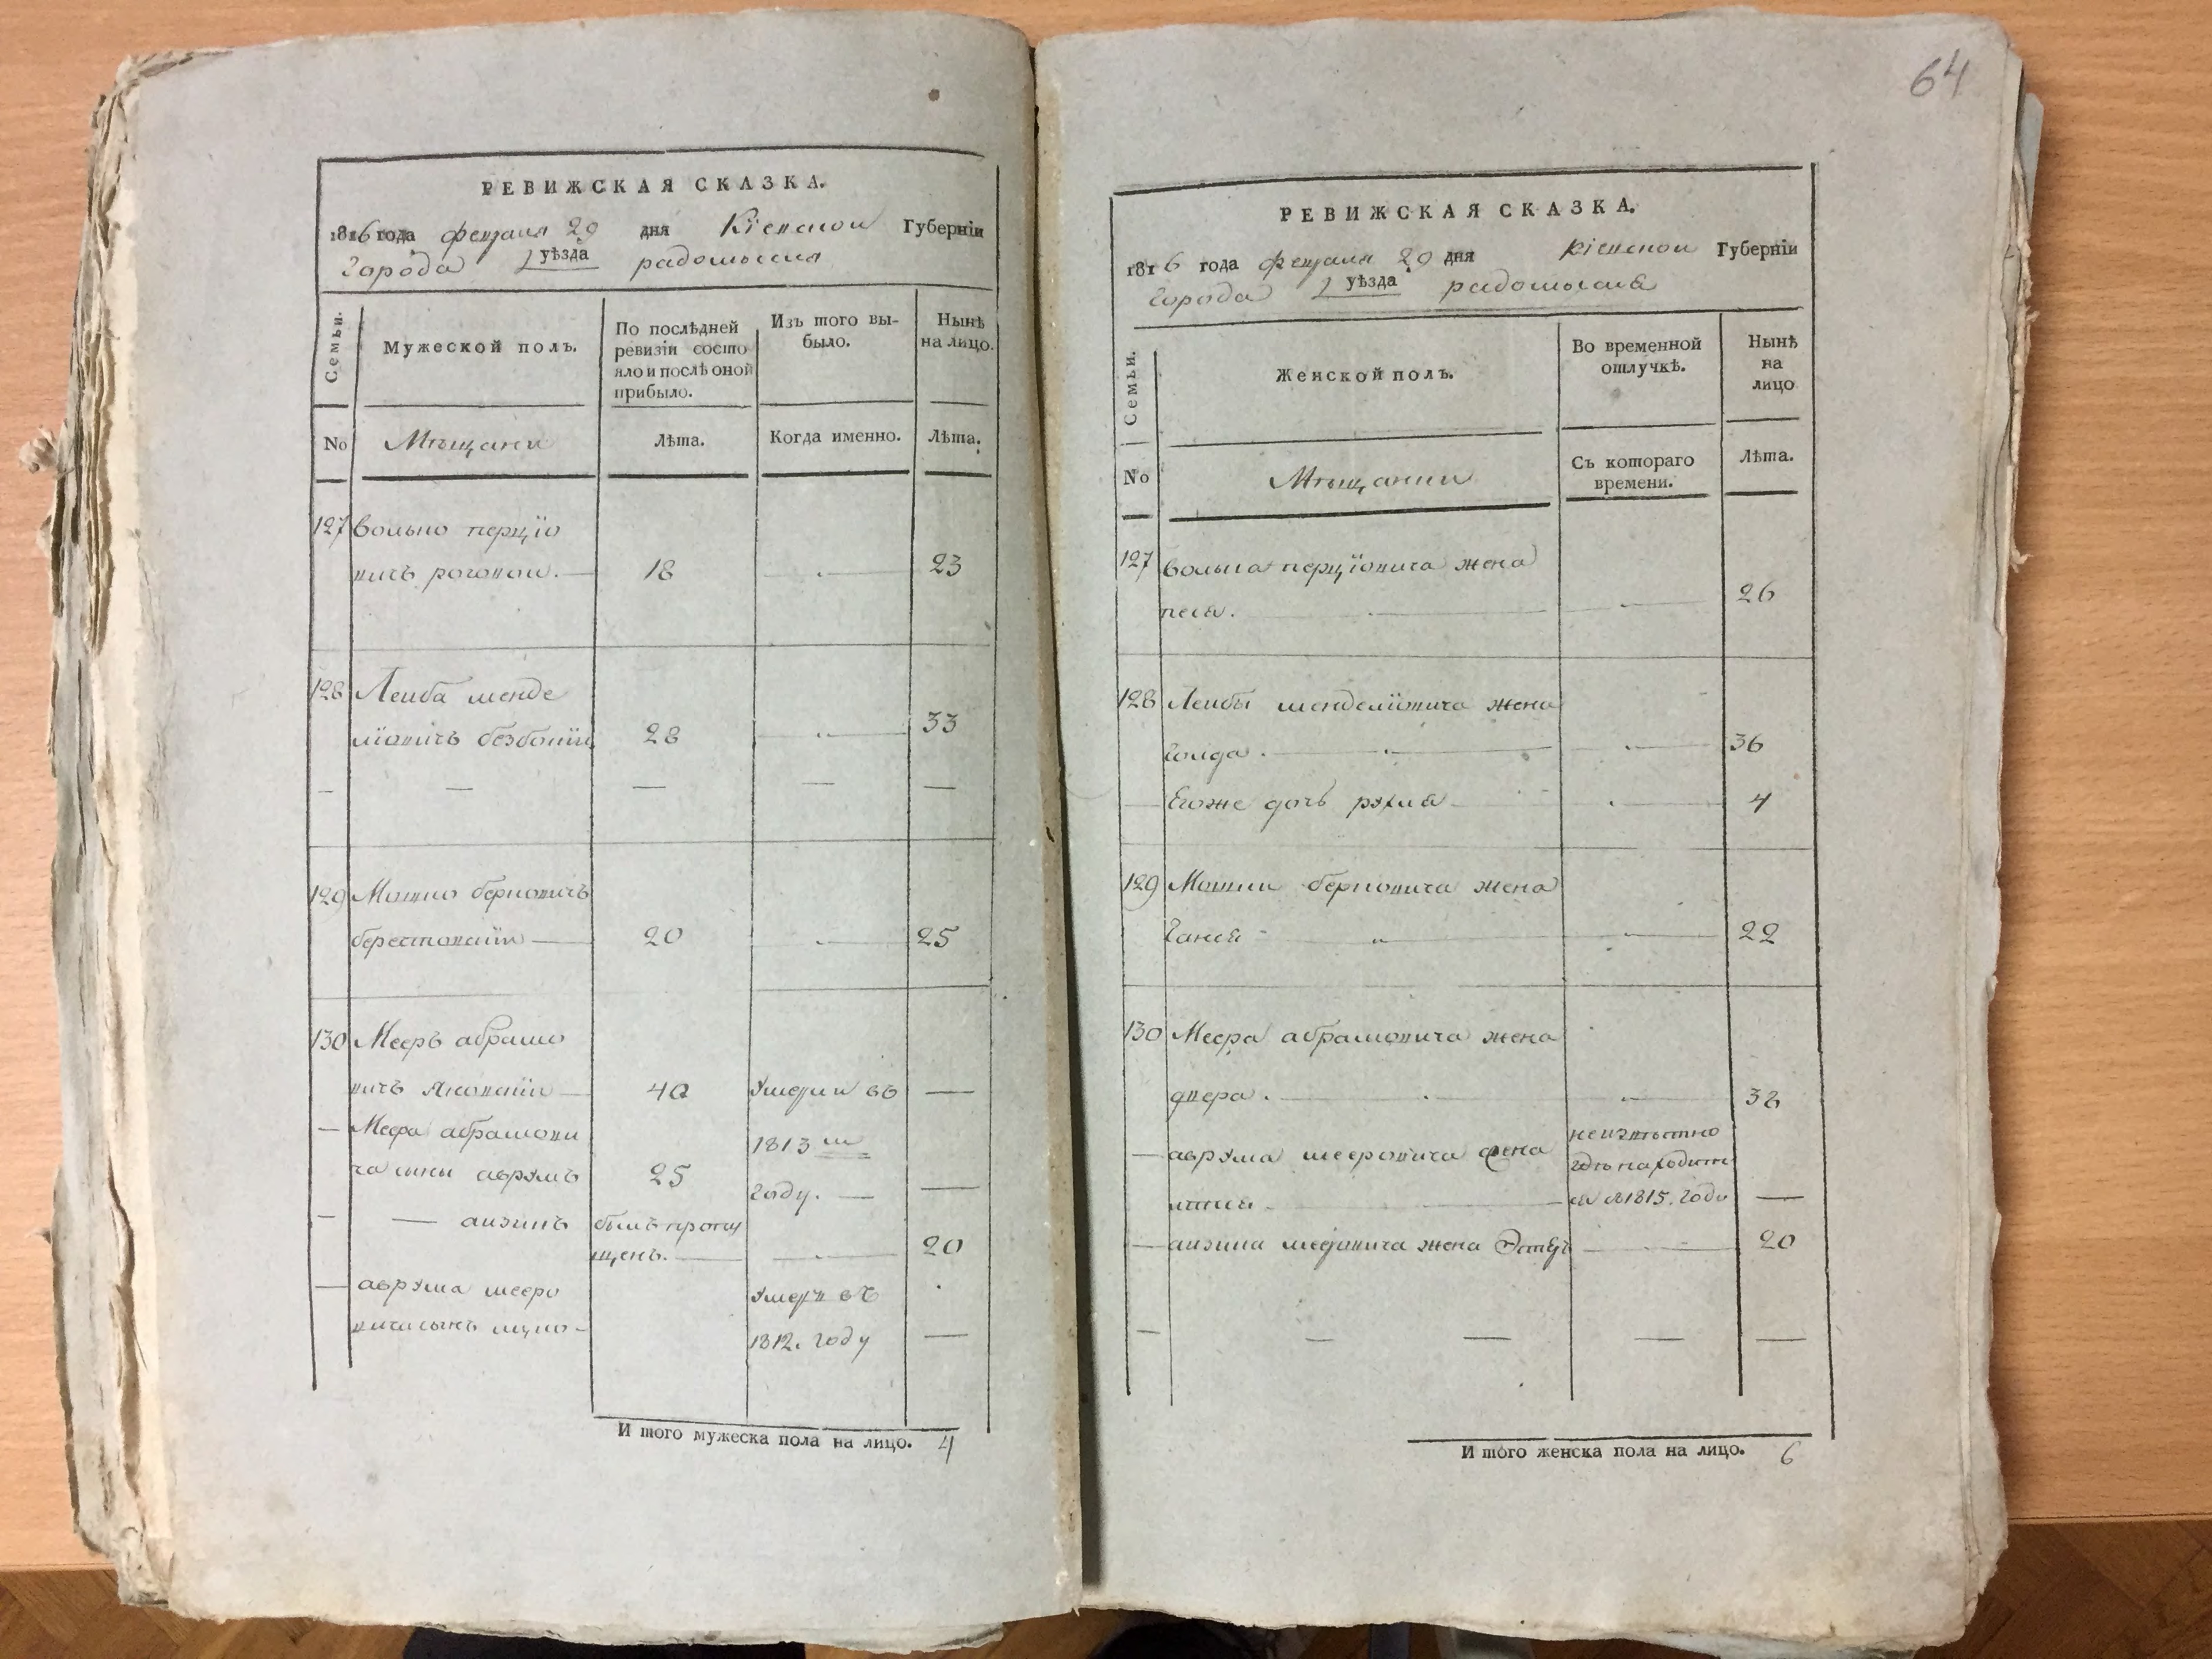 РЕВИЖСКАЯ СКАЗКА.
1816 года февраля 29 дня Кіевской Губерніи
Города уѣзда радомысля
Семьи.
Мужеской полъ.
По послѣдней ревизіи состо
яло и послѣ оной прибыло.
Изъ того вы-
было.
Нынѣ
на лицо.
No
Мѣщани
Лѣта.
Когда именно.
Лѣта.
127 Волько перцїо
вичъ роговой. 18 23
128 Леиба менде
лїовичъ 28 33
129 Мошко берковичъ
20 25
130 Мееръ абрамо
вичъ 40 Умерли въ
Меера абрамови 1813 м
ча сыны аврумъ 25 году.
аизикъ былъ пропу
щенъ. 20
аврума мееро Умеръ въ
вича сынъ 1812. году
И того мужеска пола на лицо. 4
64
РЕВИЖСКАЯ СКАЗКА.
1816 года февраля 29 дня кіевской Губерніи
Города уѣзда радомысля
Семьи.
Женской полъ.
Во временной
отлучкѣ.
Нынѣ
на
лицо
No
Мѣщанки
Съ котораго
времени.
Лѣта.
127 Волька перцїовича жена
песя. 26
128 Леибы менделїовича жена
Голда. 36
Егоже дочь рухля 4
129 Мошки берковича жена
Ганся 22
130 Меера абрамовича жена
двера. 38
аврума мееровича жена неизвѣстно
гдѣ находит
ся с 1815. Году
аизика мееровича жена Эстеръ 20
И того женска пола на лицо. 6